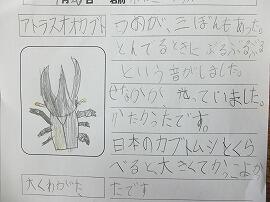 アトラスオオカブト
つのが、三ぼんもあった。
とんでるときにぶるぶるぶる
という音がしました。
せなかが、光っていました。
かたかったです。
日本のカブトムシとくら
べると、大きくてかっこよか
ったです
大くわがた